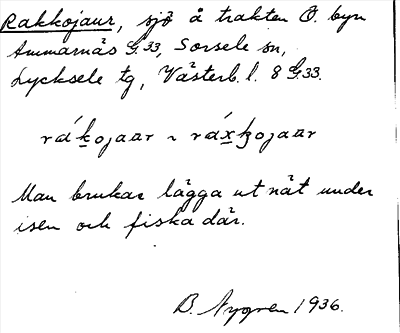 Rakkojaur, sjö å trakten Ö. byn
Ammarnäs G.33, Sorsele sn,
Lycksele tg, Västerb. l. 8 G.33.
rák̲ojaar ~ ráx̲ꜧojaar
Man brukar lägga ut nät under
isen och fiska där.
B. Nygren 1936.